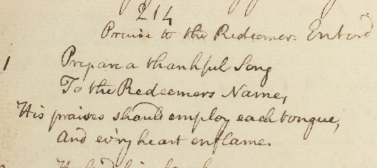 214
Praise to the Redeemer. Enter'd
1 Prepare a thankful Song
To the Redeemers Name,
His praises should employ each tongue,
And ev'ry heart enflame.